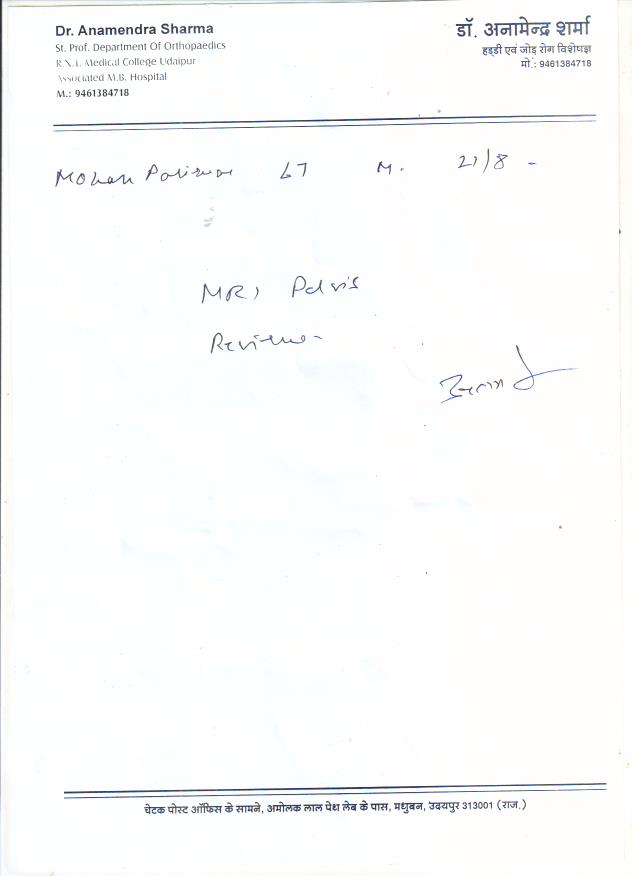 Dr. Anamendra Sharma
St. Prof. Department Of Orthopaedics
R.N.T. Medical College Udaipur
Associated M.B. Hospital
M.: 9461384718
डॉ. अनामेन्द्र शर्मा
हड्डी एवं जोड़ रोग विशेषज्ञ
मो.: 9461384718
Mohan 67 M. 21/8 -
MRI Pelvis
Review
चेटक पोस्ट ऑफिस के सामने, अमोलक लाल पेथ लेब के पास, मधुबन, उदयपुर 313001 (राज.)